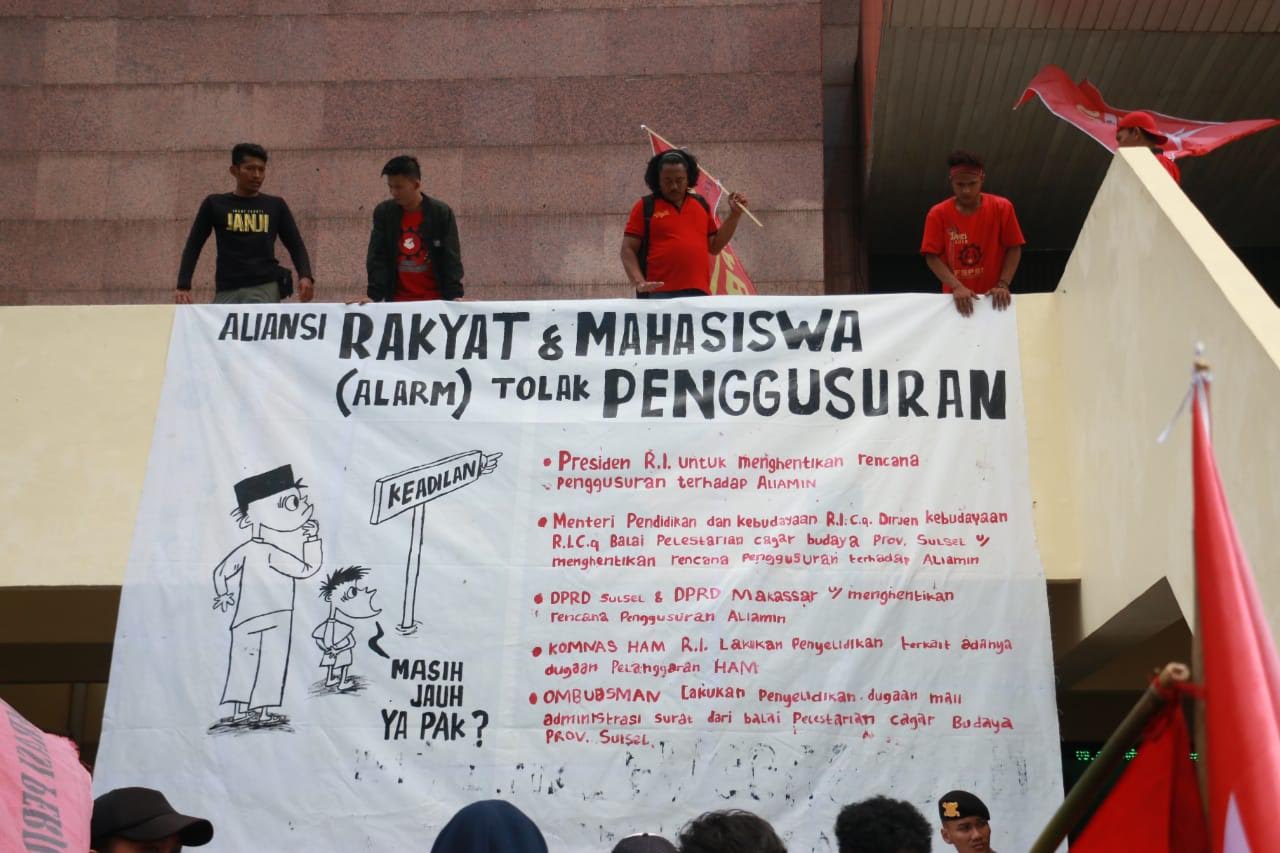 JANJI
ALIANSI RAKYAT & MAHASISWA
(ALARM) TOLAK PENGGUSURAN
KEADILAN
MASIH
JAUH
YA PAK?
• Presiden R.I. untuk menghentikan rencana
penggusuran terhadap ALIAMIN
• Menteri Pendidikan dan kebudayaan R.I.C.q. Dirjen kebudayaan
R.I.C.q Balai Pelestarian cagar budaya Prov. Sulsel u/
menghentikan rencana penggusuran terhadap Aliamin
• DPRD Sulsel & DPRD Makassar u/ menghentikan
rencana Penggusuran Aliamin
• KOMNAS HAM R.I. Lakukan Penyelidikan terkait adanya
dugaan Pelanggaran HAM
• OMBUDSMAN Lakukan Penyelidikan dugaan mall
administrasi surat dari balai Pelestarian cagar Budaya
PROV. Sulsel.